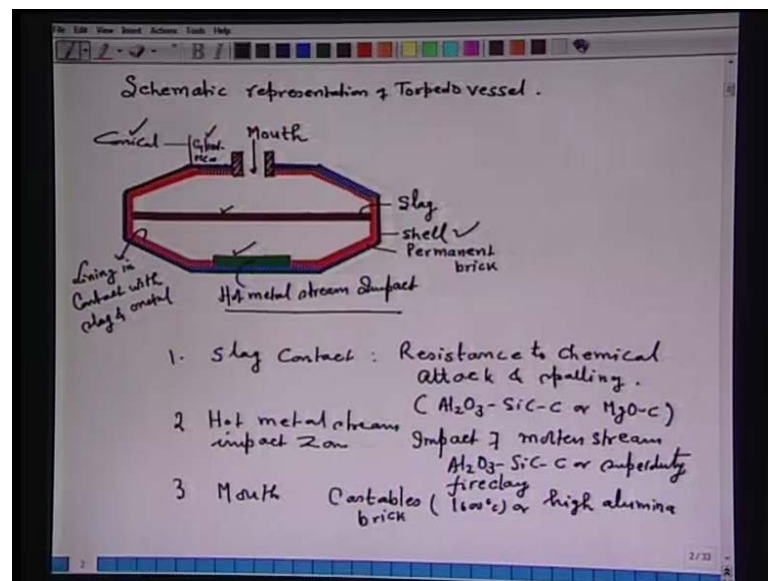 File Edit View Insert Actions Tools Help
B I
Schematic representation of Torpedo vessel.
Conical
Mouth
Slag
shell
Permanent
brick
Lining in
Contact with
slag & metal
Hot metal stream Impact
1. Slag Contact : Resistance to Chemical
attack & spalling.
(Al2O3-SiC-C or MgO-C)
2 Hot metal stream
impact Zon Impact of molten stream
Al2O3-SiC-C or superduty
fireclay
3 Mouth Castables (1600°C) or high alumina
brick
2
2/33